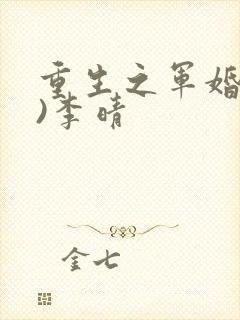 重生之军婚
)李晴
金七